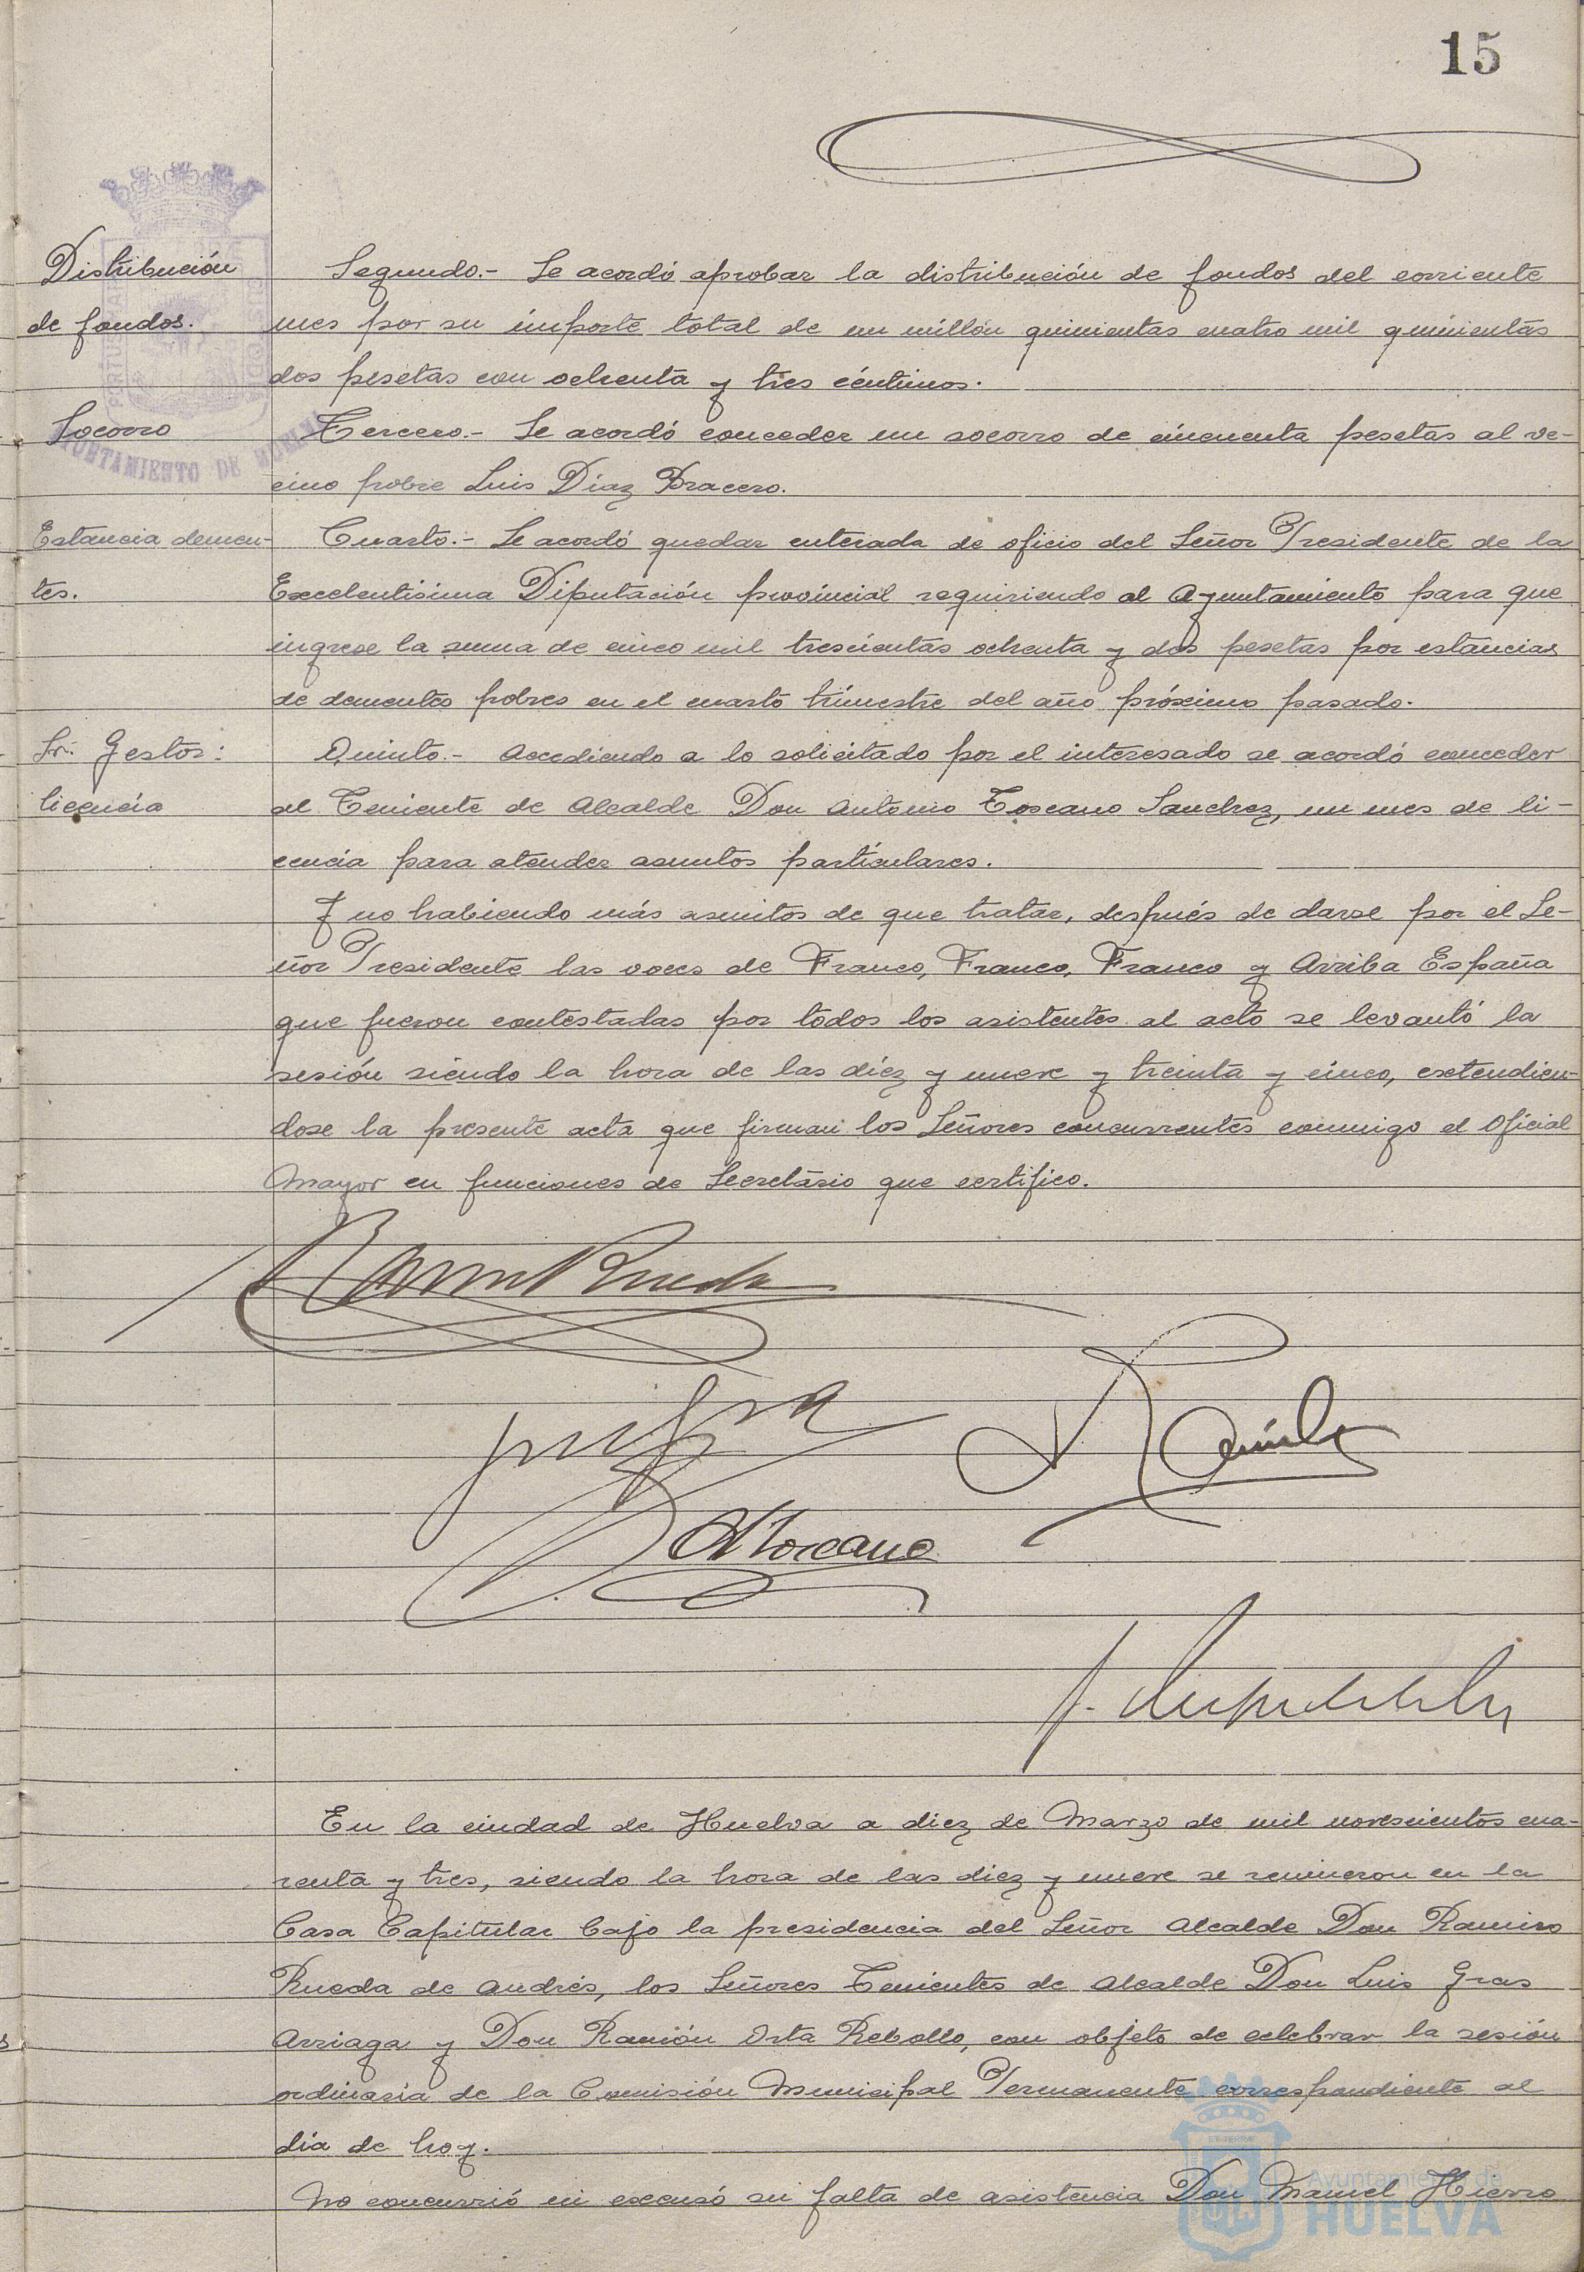 15
Distribución
de fondos.
Segundo.- Se acordó aprobar la distribución de fondos del corriente
mes por su importe total de un millón quinientas cuatro mil quinientas
dos pesetas con ochenta y tres céntimos.
Socorro
Tercero.- Se acordó conceder un socorro de cincuenta pesetas al ve-
cino pobre Luis Díaz Bracero.
AYUNTAMIENTO DE HUELVA
Estancia demen-
tes.
Cuarto.- Se acordó quedar enterada de oficio del Señor Presidente de la
Excelentísima Diputación provincial requiriendo al Ayuntamiento para que
ingrese la suma de cinco mil trescientas ochenta y dos pesetas por estancias
de dementes pobres en el cuarto trimestre del año próximo pasado.
Sr. Gestor:
licencia
Quinto.- Accediendo a lo solicitado por el interesado se acordó conceder
al Teniente de Alcalde Don Antonio Toscano Sanchez, un mes de li-
cencia para atender asuntos particulares.
Y no habiendo más asuntos de que tratar, después de darse por el Se-
ñor Presidente las voces de Franco, Franco, Franco y Arriba España
que fueron contestadas por todos los asistentes al acto se levantó la
sesión siendo la hora de las diez y nueve y treinta y cinco, extendien-
dose la presente acta que firman los Señores concurrentes conmigo el Oficial
Mayor en funciones de Secretario que certifico.
Ramiro Rueda
A Toscano
En la ciudad de Huelva a diez de Marzo de mil novescientos cua-
renta y tres, siendo la hora de las diez y nueve se reunieron en la
Casa Capitular bajo la presidencia del Señor Alcalde Don Ramiro
Rueda de Andrés, los Señores Tenientes de Alcalde Don Luis Gras
Arriaga y Don Ramón Orta Rebollo, con objeto de celebrar la sesión
ordinaria de la Comisión Municipal Permanente correspondiente al
día de hoy.
No concurrió ni excusó su falta de asistencia Don Manuel Hierro
Ayuntamiento de
HUELVA